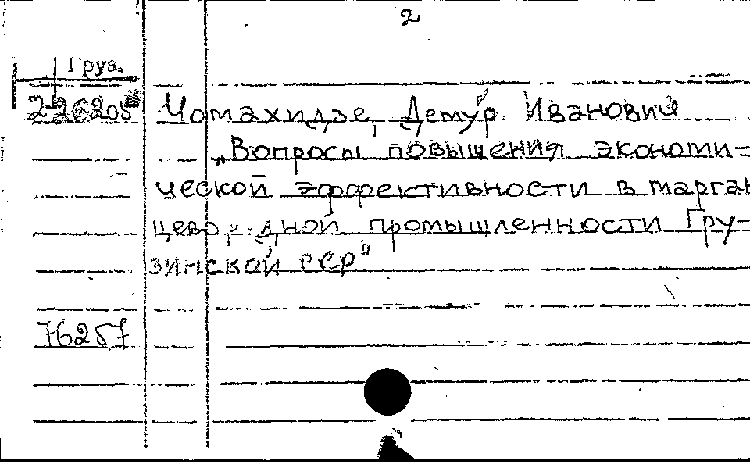 2
Груз.
226205 Чомахидзе, Демур Иванович
„Вопросы повышения экономи-
ческой эффективности в марган
цево дной промышленности Гру-
зинской ССР"
76257